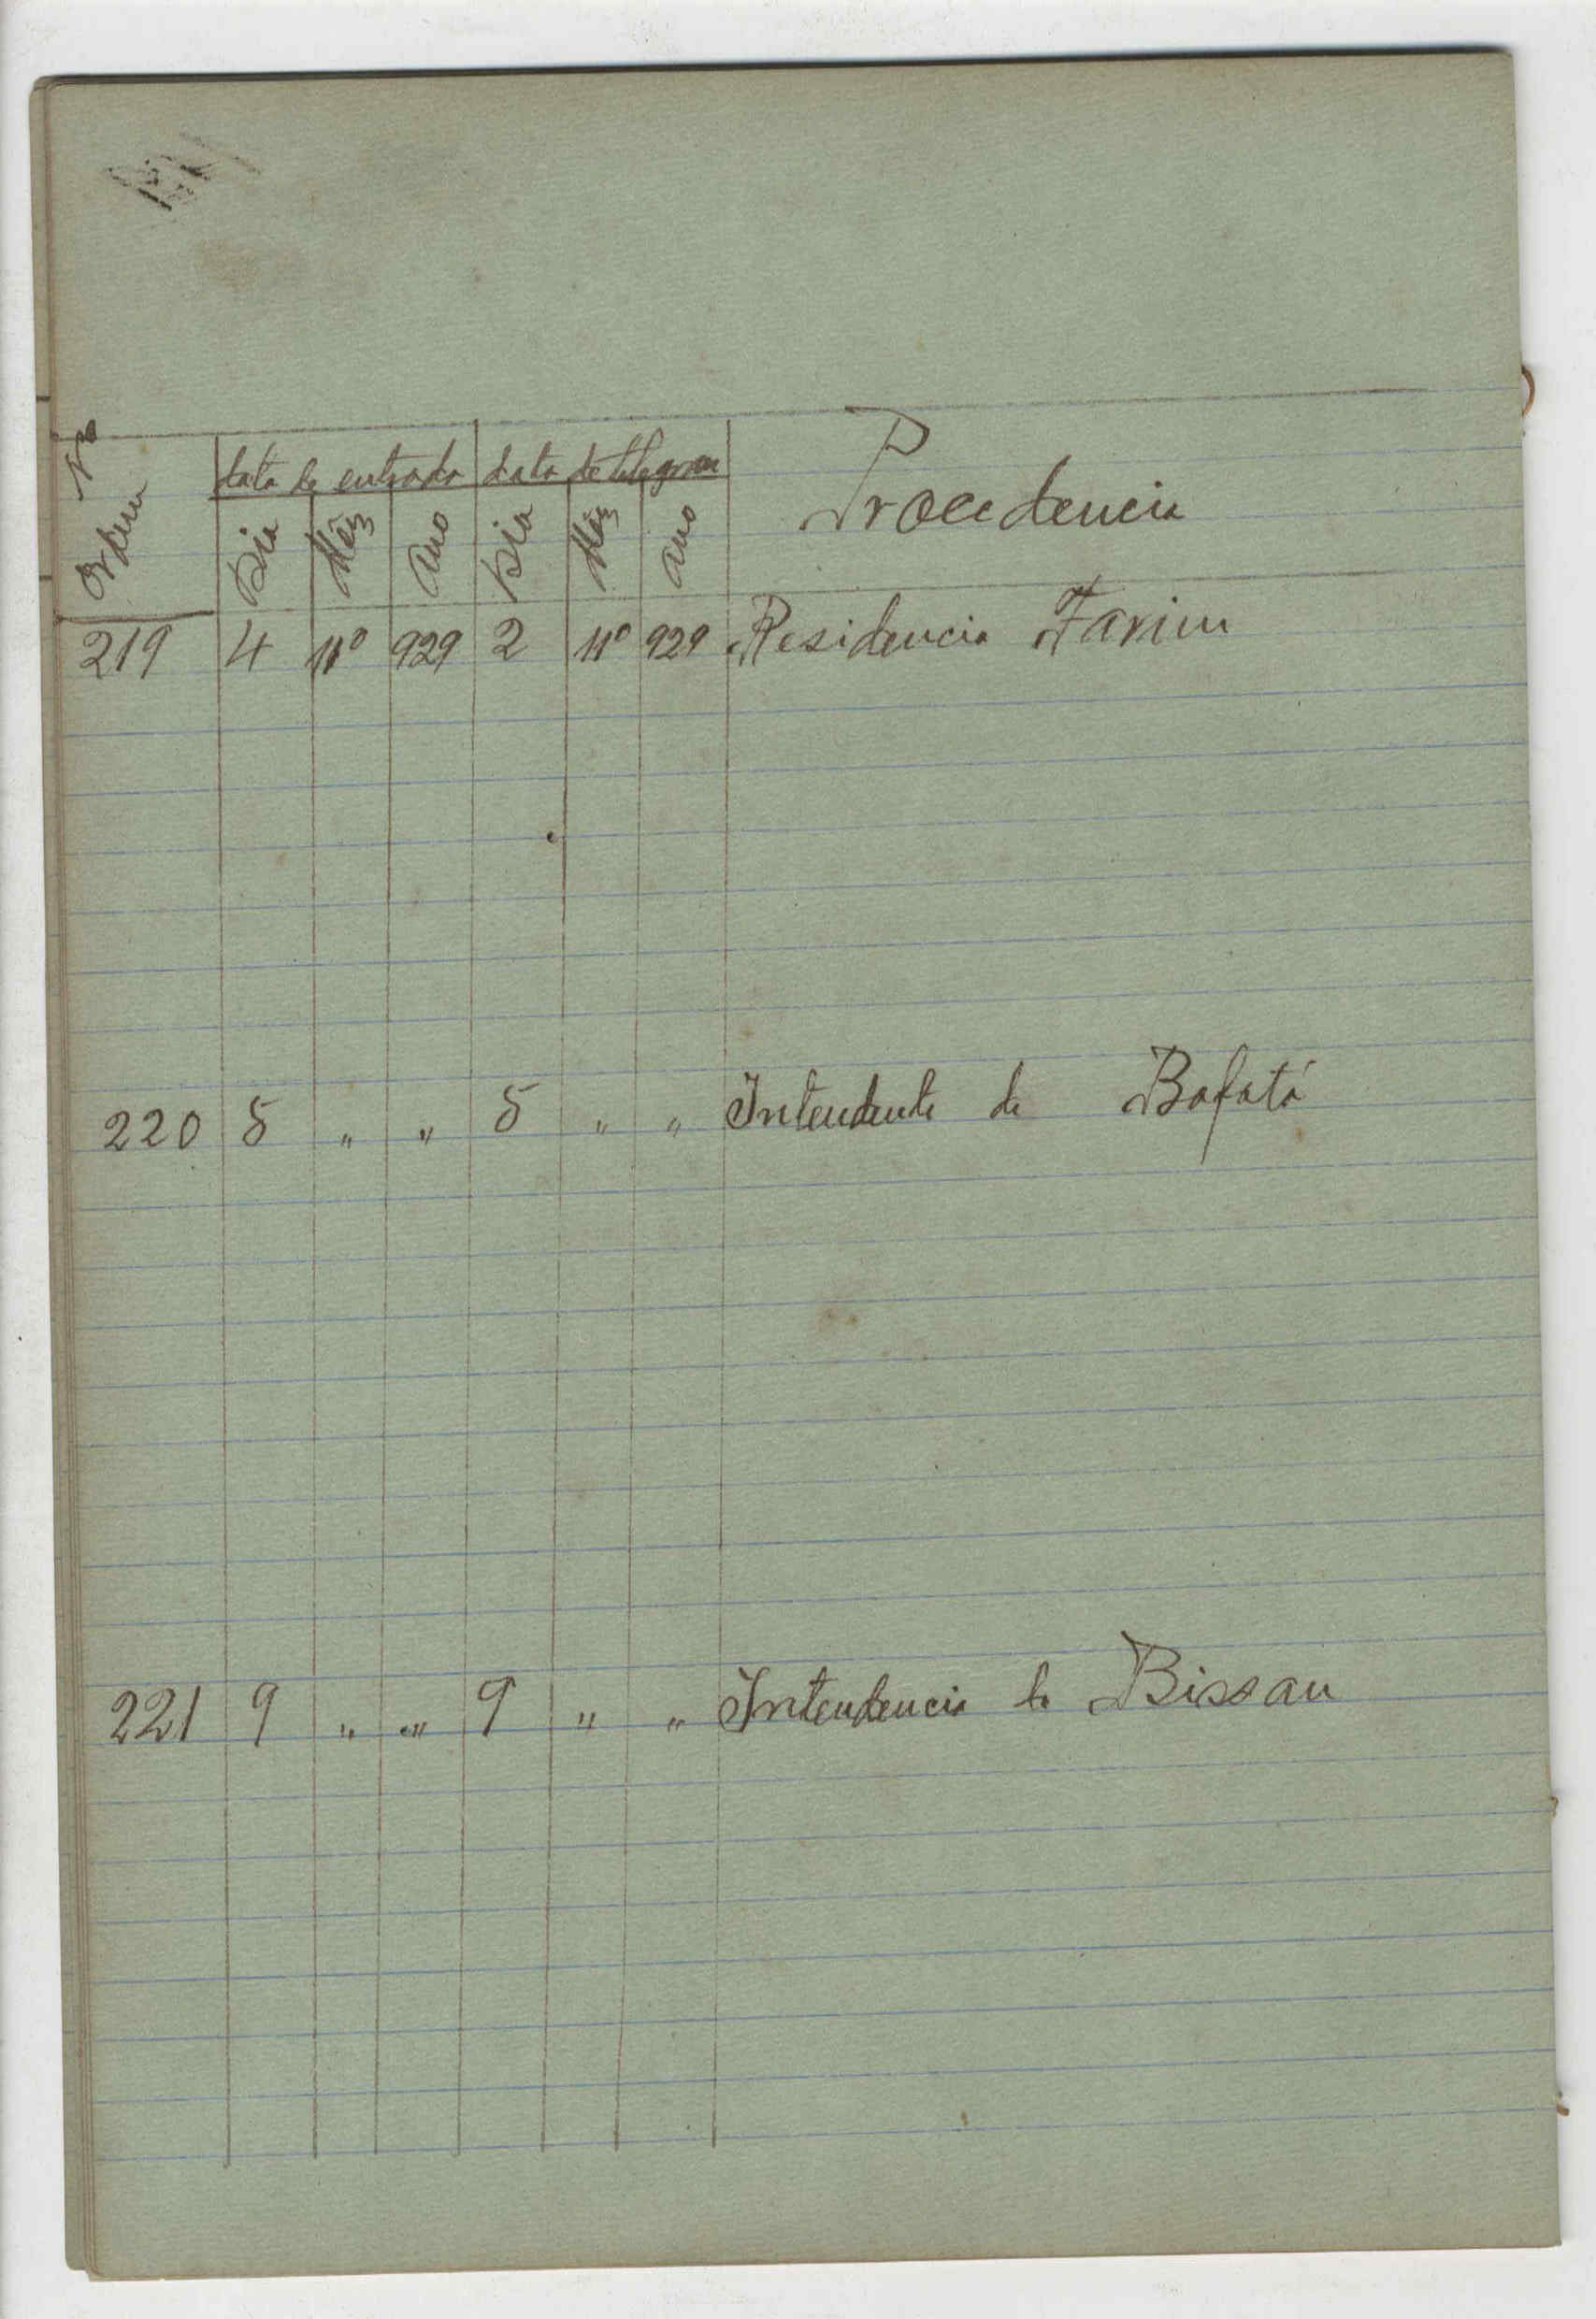 Nº Ordem
data de entrada data de telegrama Procedencia
Dia Mêz Ano Dia Mêz Ano
219 4 11º 929 2 11º 929 Residencia Farim
220 5 " " 5 " " Intendente de Bafatá
221 9 " " 9 " " Intendencia de Bissau